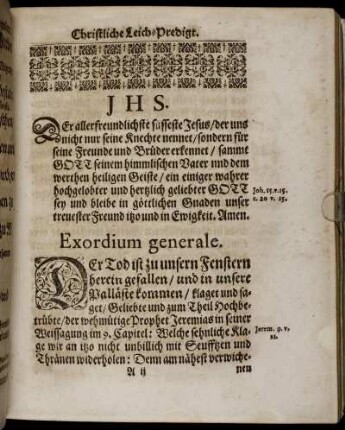 Christliche Leich-Predigt.
J H S.
DEr allerfreundlichste süsseste Jesus/der uns
nicht nur seine Knechte nennet/sondern für
seine Freunde und Brüder erkennet/ sammt
GOTT seinem himmlischen Vater und dem
werthen heiligen Geiste/ ein einiger wahrer
hochgelobter und hertzlich geliebter GOTT
sey und bleibe in göttlichen Gnaden unser
treuester Freund itzo und in Ewigkeit. Amen.
Joh. 15. v. 15.
c. 20 v. 15.
Exordium generale.
DEr Tod ist zu unsern Fenstern
herein gefallen/ und in unsere
Palläste kommen/ klaget und sa-
get/ Geliebte und zum Theil Hochbe-
trübte/der wehmütige Prophet Jeremias in seiner
Weissagung im 9. Capitel: Welche sehnliche Kla-
ge wir an itzo nicht unbillich mit Seufftzen und
Thränen widerholen: Denn am nähest verwiche-
Jerem. 9. v.
21.
A ij
nen